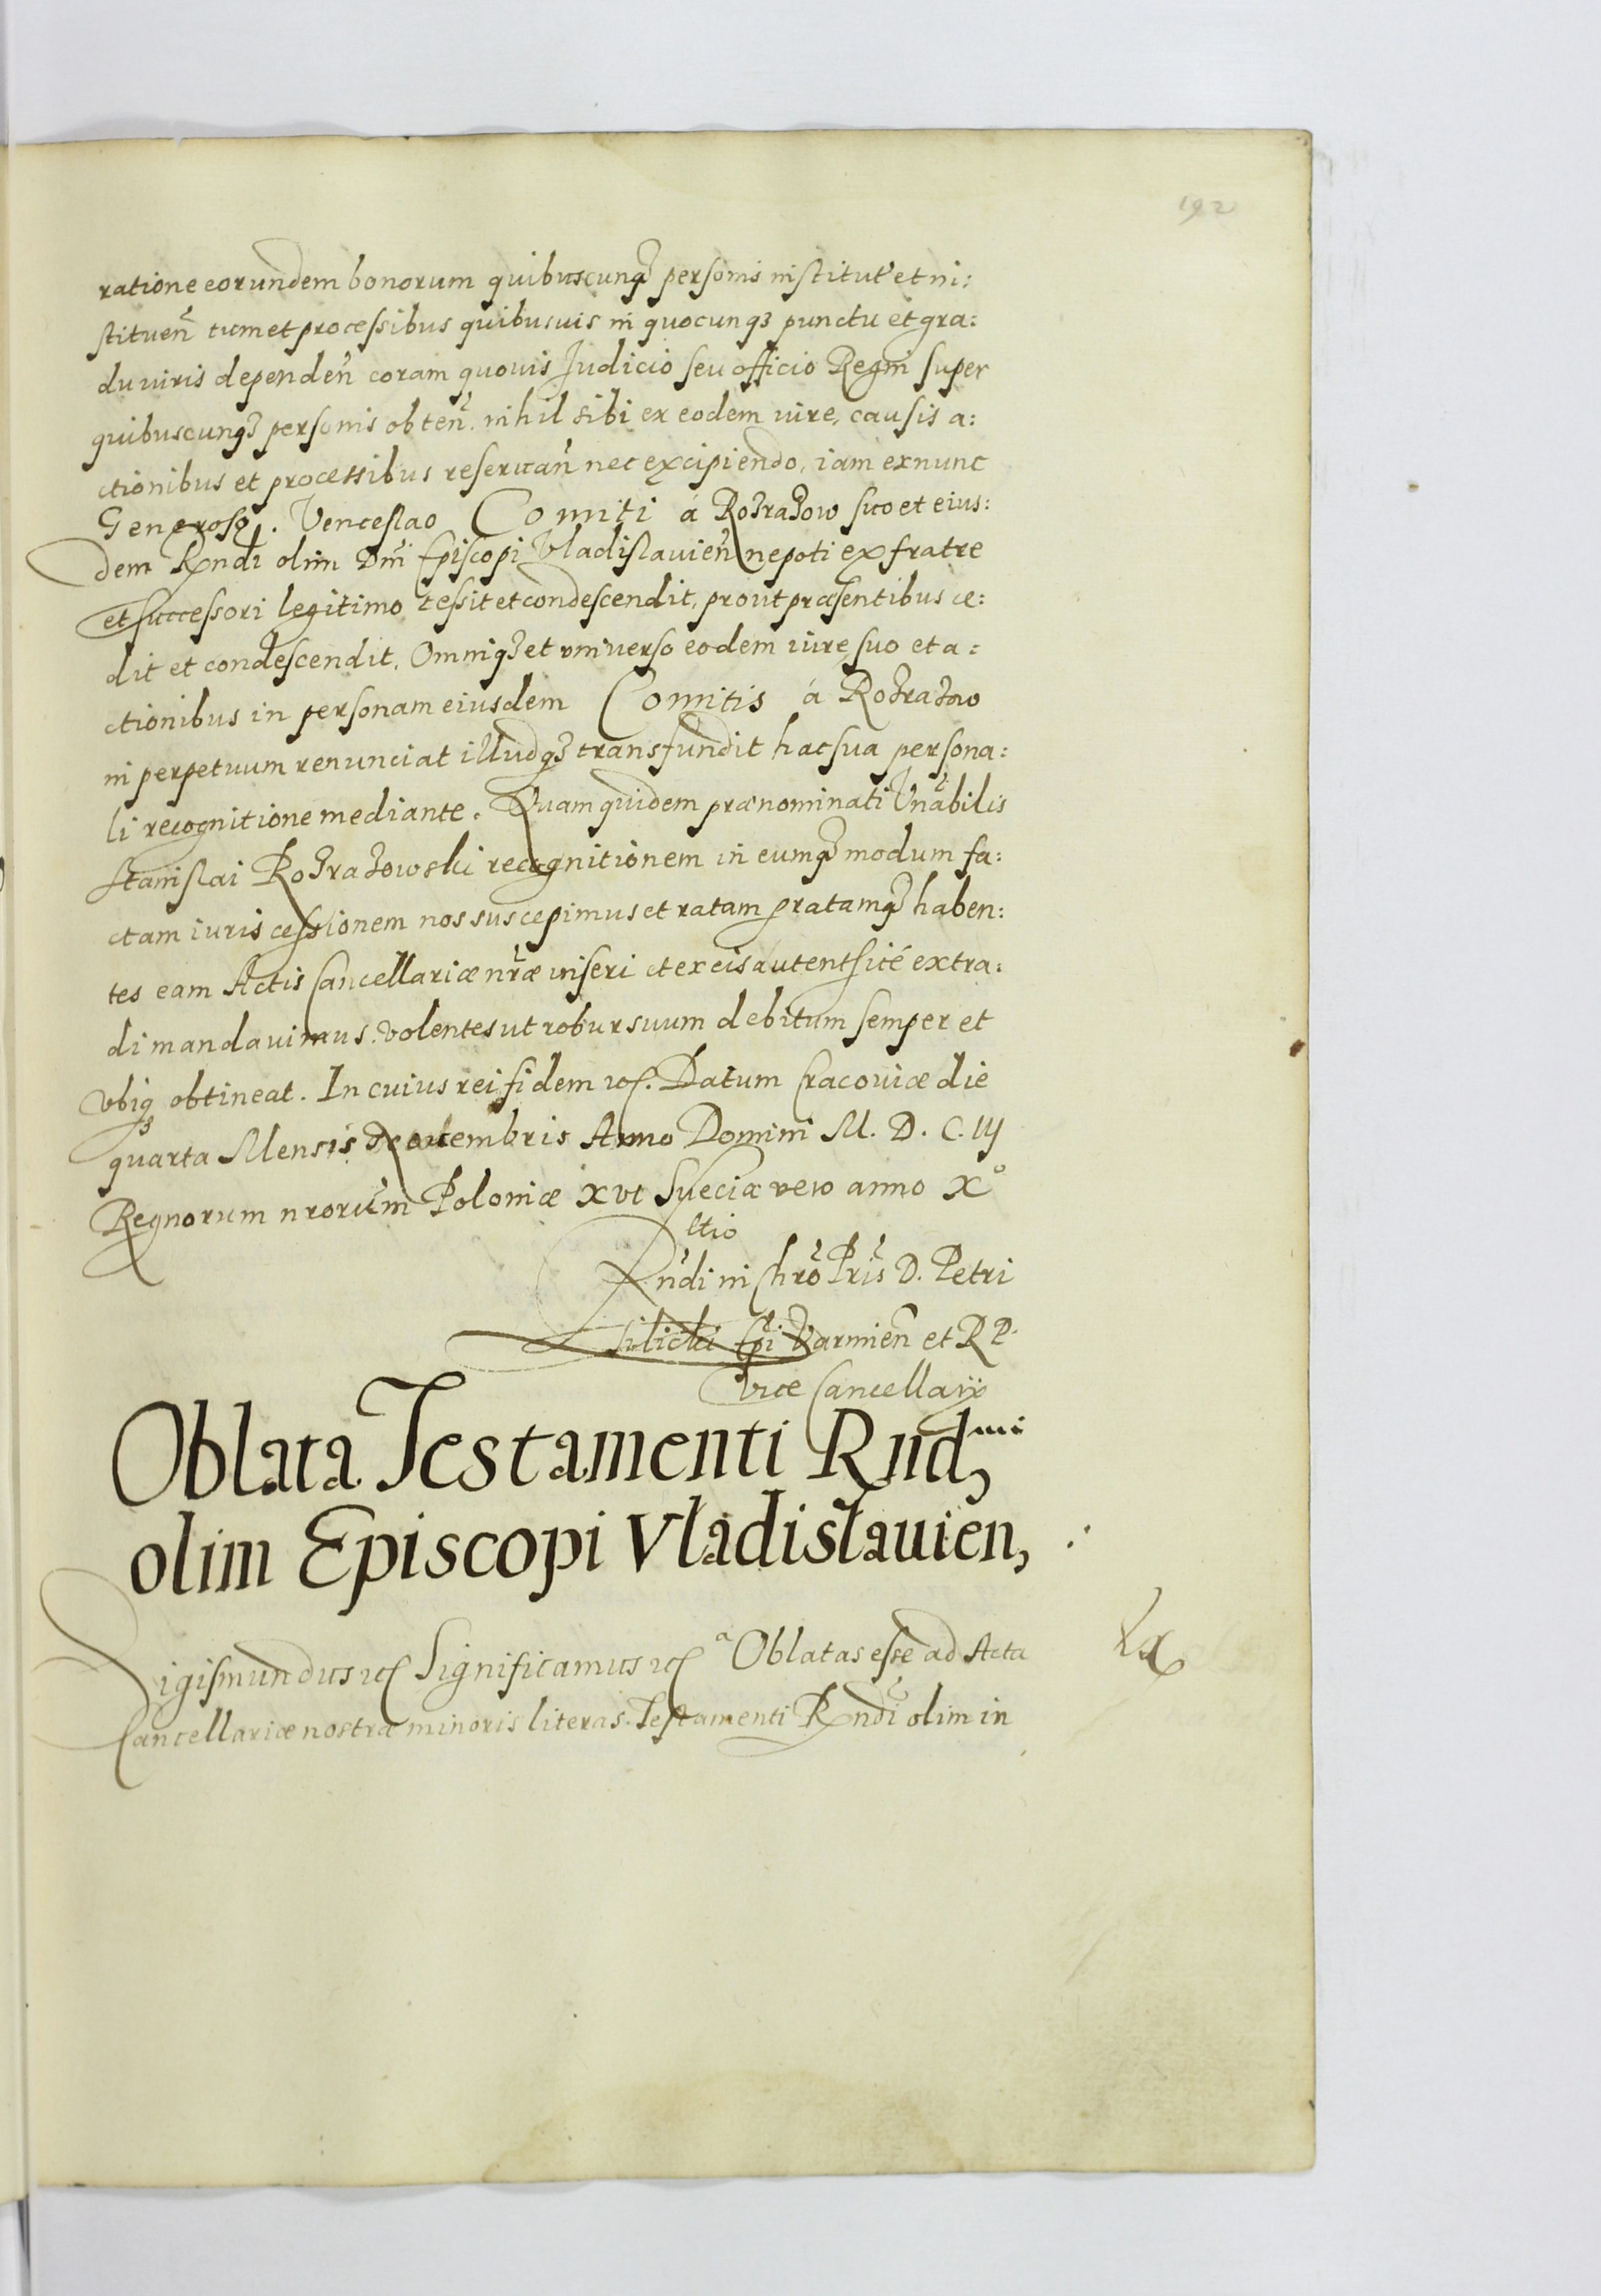 192
ratione eorundem bonorum quibuscunq3 personis institut et in:
stituen̄ tum et processibus quibusuis in quocunq3 punctu et gra:
du iuris dependen̄ coram quouis Judicio seu officio Regni super
quibuscunq3 personis obten̄. nihil sibi ex eodem iure, causis a:
ctionibus et processibus reseruan̄ nec excipiendo, iam ex nunc
Generoso. Venceslao Comiti á Rozrazow suo et eius:
dem Rndi olim Dnī Episcopi Vladislauien̄ nepoti ex fratre
et successori legitimo cessit et condescendit, prout præsentibus ce:
dit et condescendit. Omniq3 et vniuerso eodem iure suo et a:
ctionibus in personam eiusdem Comitis á Rozrazow
in perpetuum renunciat illudq3 transfundit hac sua persona:
li recognitione mediante. Quam quidem prænominati Vnābilis
Stanislai Rozrazowski recognitionem in eumq3 modum fa:
ctam iuris cessionem nos suscepimus et ratam gratamq3 haben:
tes eam Actis Cancellariæ nr̄æ inseri et ex eis autentsicé extra:
di mandauimus. volentes ut robur suum debitum semper et
vbiq3 obtineat. In cuius rei fidem etc. Datum Cracouiæ die
quarta Mensis Decembris Anno Domini M. D. C. IIJ
Regnorum nrorum̄ Poloniæ XVI Sueciæ vero anno X°
Rel̄tio
Rn̄di in Chrō Pr̄is D. Petri
Tilicki Ep̄i Varmien̄ et R P.
Vice Cancellarij
Oblata Testamenti Rnd^mi
olim Episcopi Vladislauien,
Sigismundus etc Significamus etc ª Oblatas esse ad Acta
Cancellariæ nostræ minoris literas Testamenti Rn̄di olim in